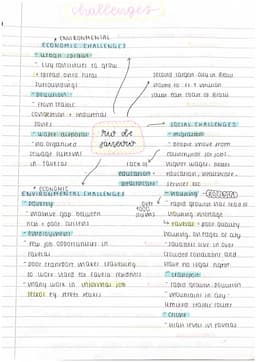 challenges
ENVIRONMENTAL
ECONOMIC CHALLENGES
urban sprawl
city continues to grow
+ spread onto rural
surroundings
pollution
from traffic
congestion + industrial
zones
waste disposal
no organised
sewage systems
in favelas
second largest city in Brazil
home to
south east coast of Brazil
rio de
janeiro
SOCIAL CHALLENGES
migration
people move from
countryside for jobs,
higher wages, better
education + healthcare
services, etc
lack of
education +
healthcare
ECONOMIC
ENVIRONMENTAL CHALLENGES
poverty
massive gap between
rich + poor citizens
employment
few job opportunities in
favelas
poor transport makes travelling
to work hard for favela residents
many work in informal job
sector eg street sales
over
1000
slums
housing
rapid growth has led to
housing shortage
favelas = poor quality
housing, on edges of city
squatters live in over
crowded conditions and
have no legal rights
transport
rapid growth, pollution
mountains in city
limited traffic routes
crime
high level in favelas